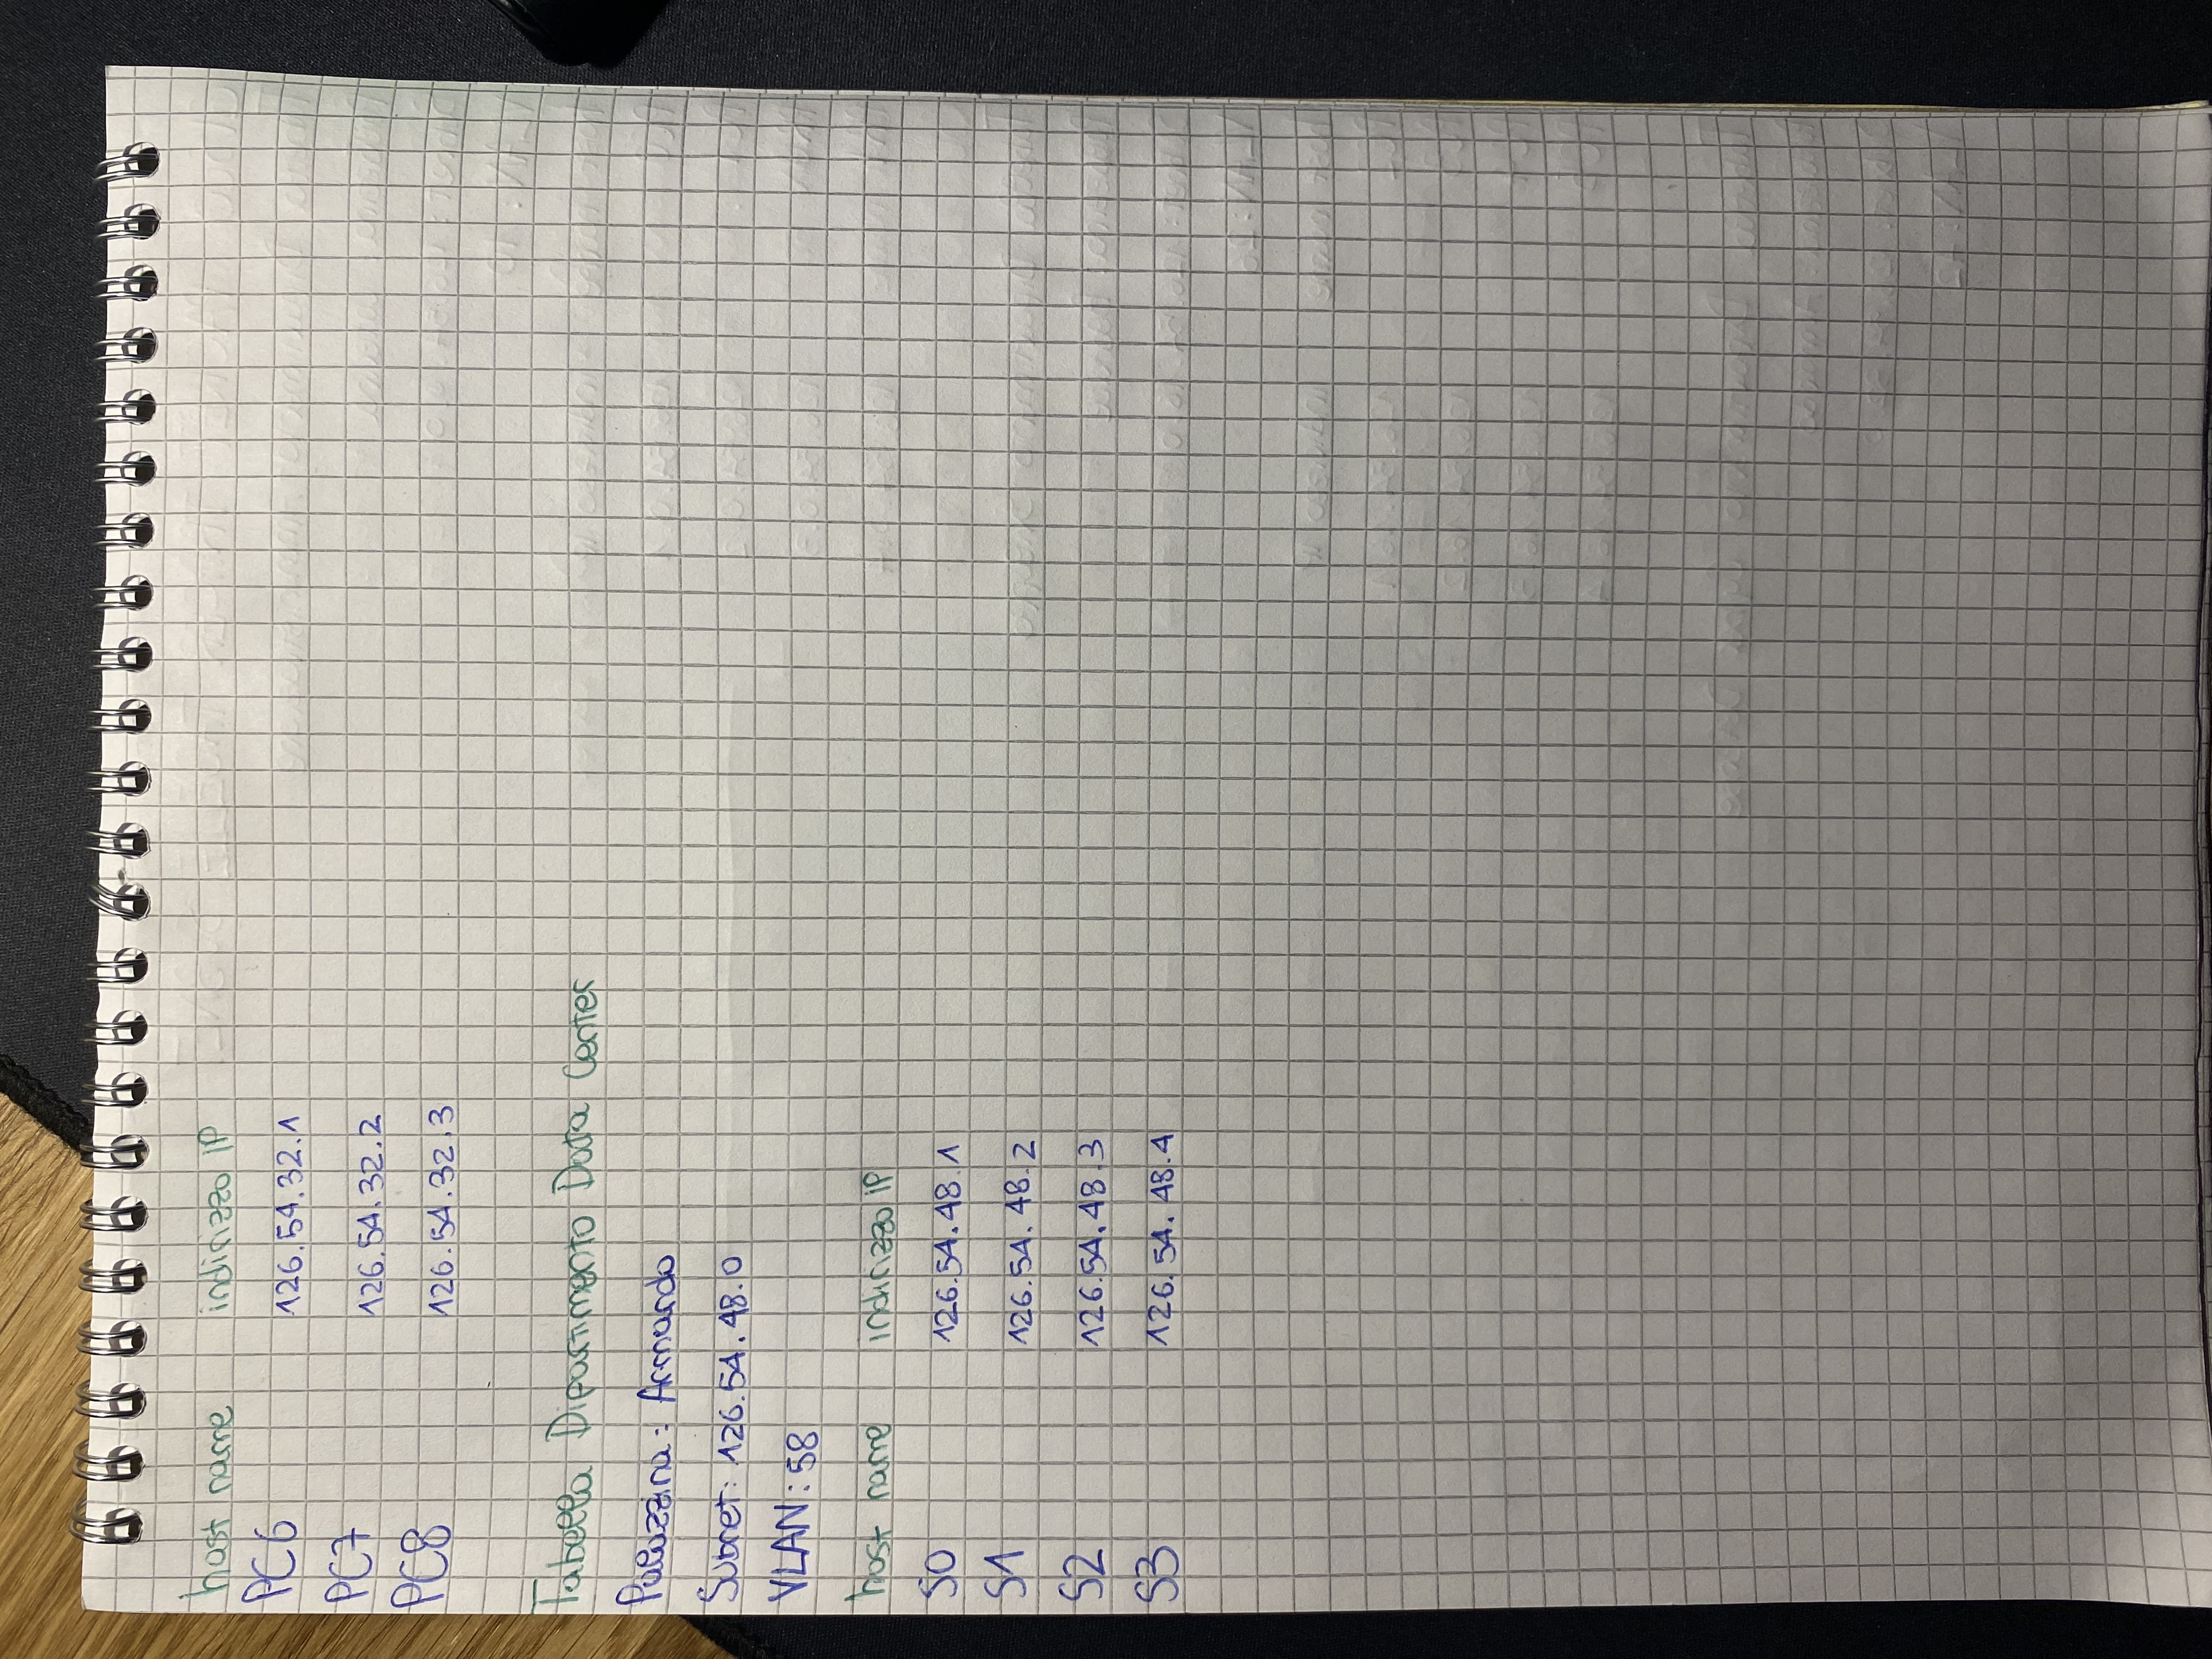 host name indirizzo IP
PC6 126.54.32.1
PC7 126.54.32.2
PC8 126.54.32.3
Tabella Dipartimento Data Center
Palazzina: Armando
Subnet: 126.54.48.0
VLAN: 58
host name indirizzo IP
S0 126.54.48.1
S1 126.54.48.2
S2 126.54.48.3
S3 126.54.48.4